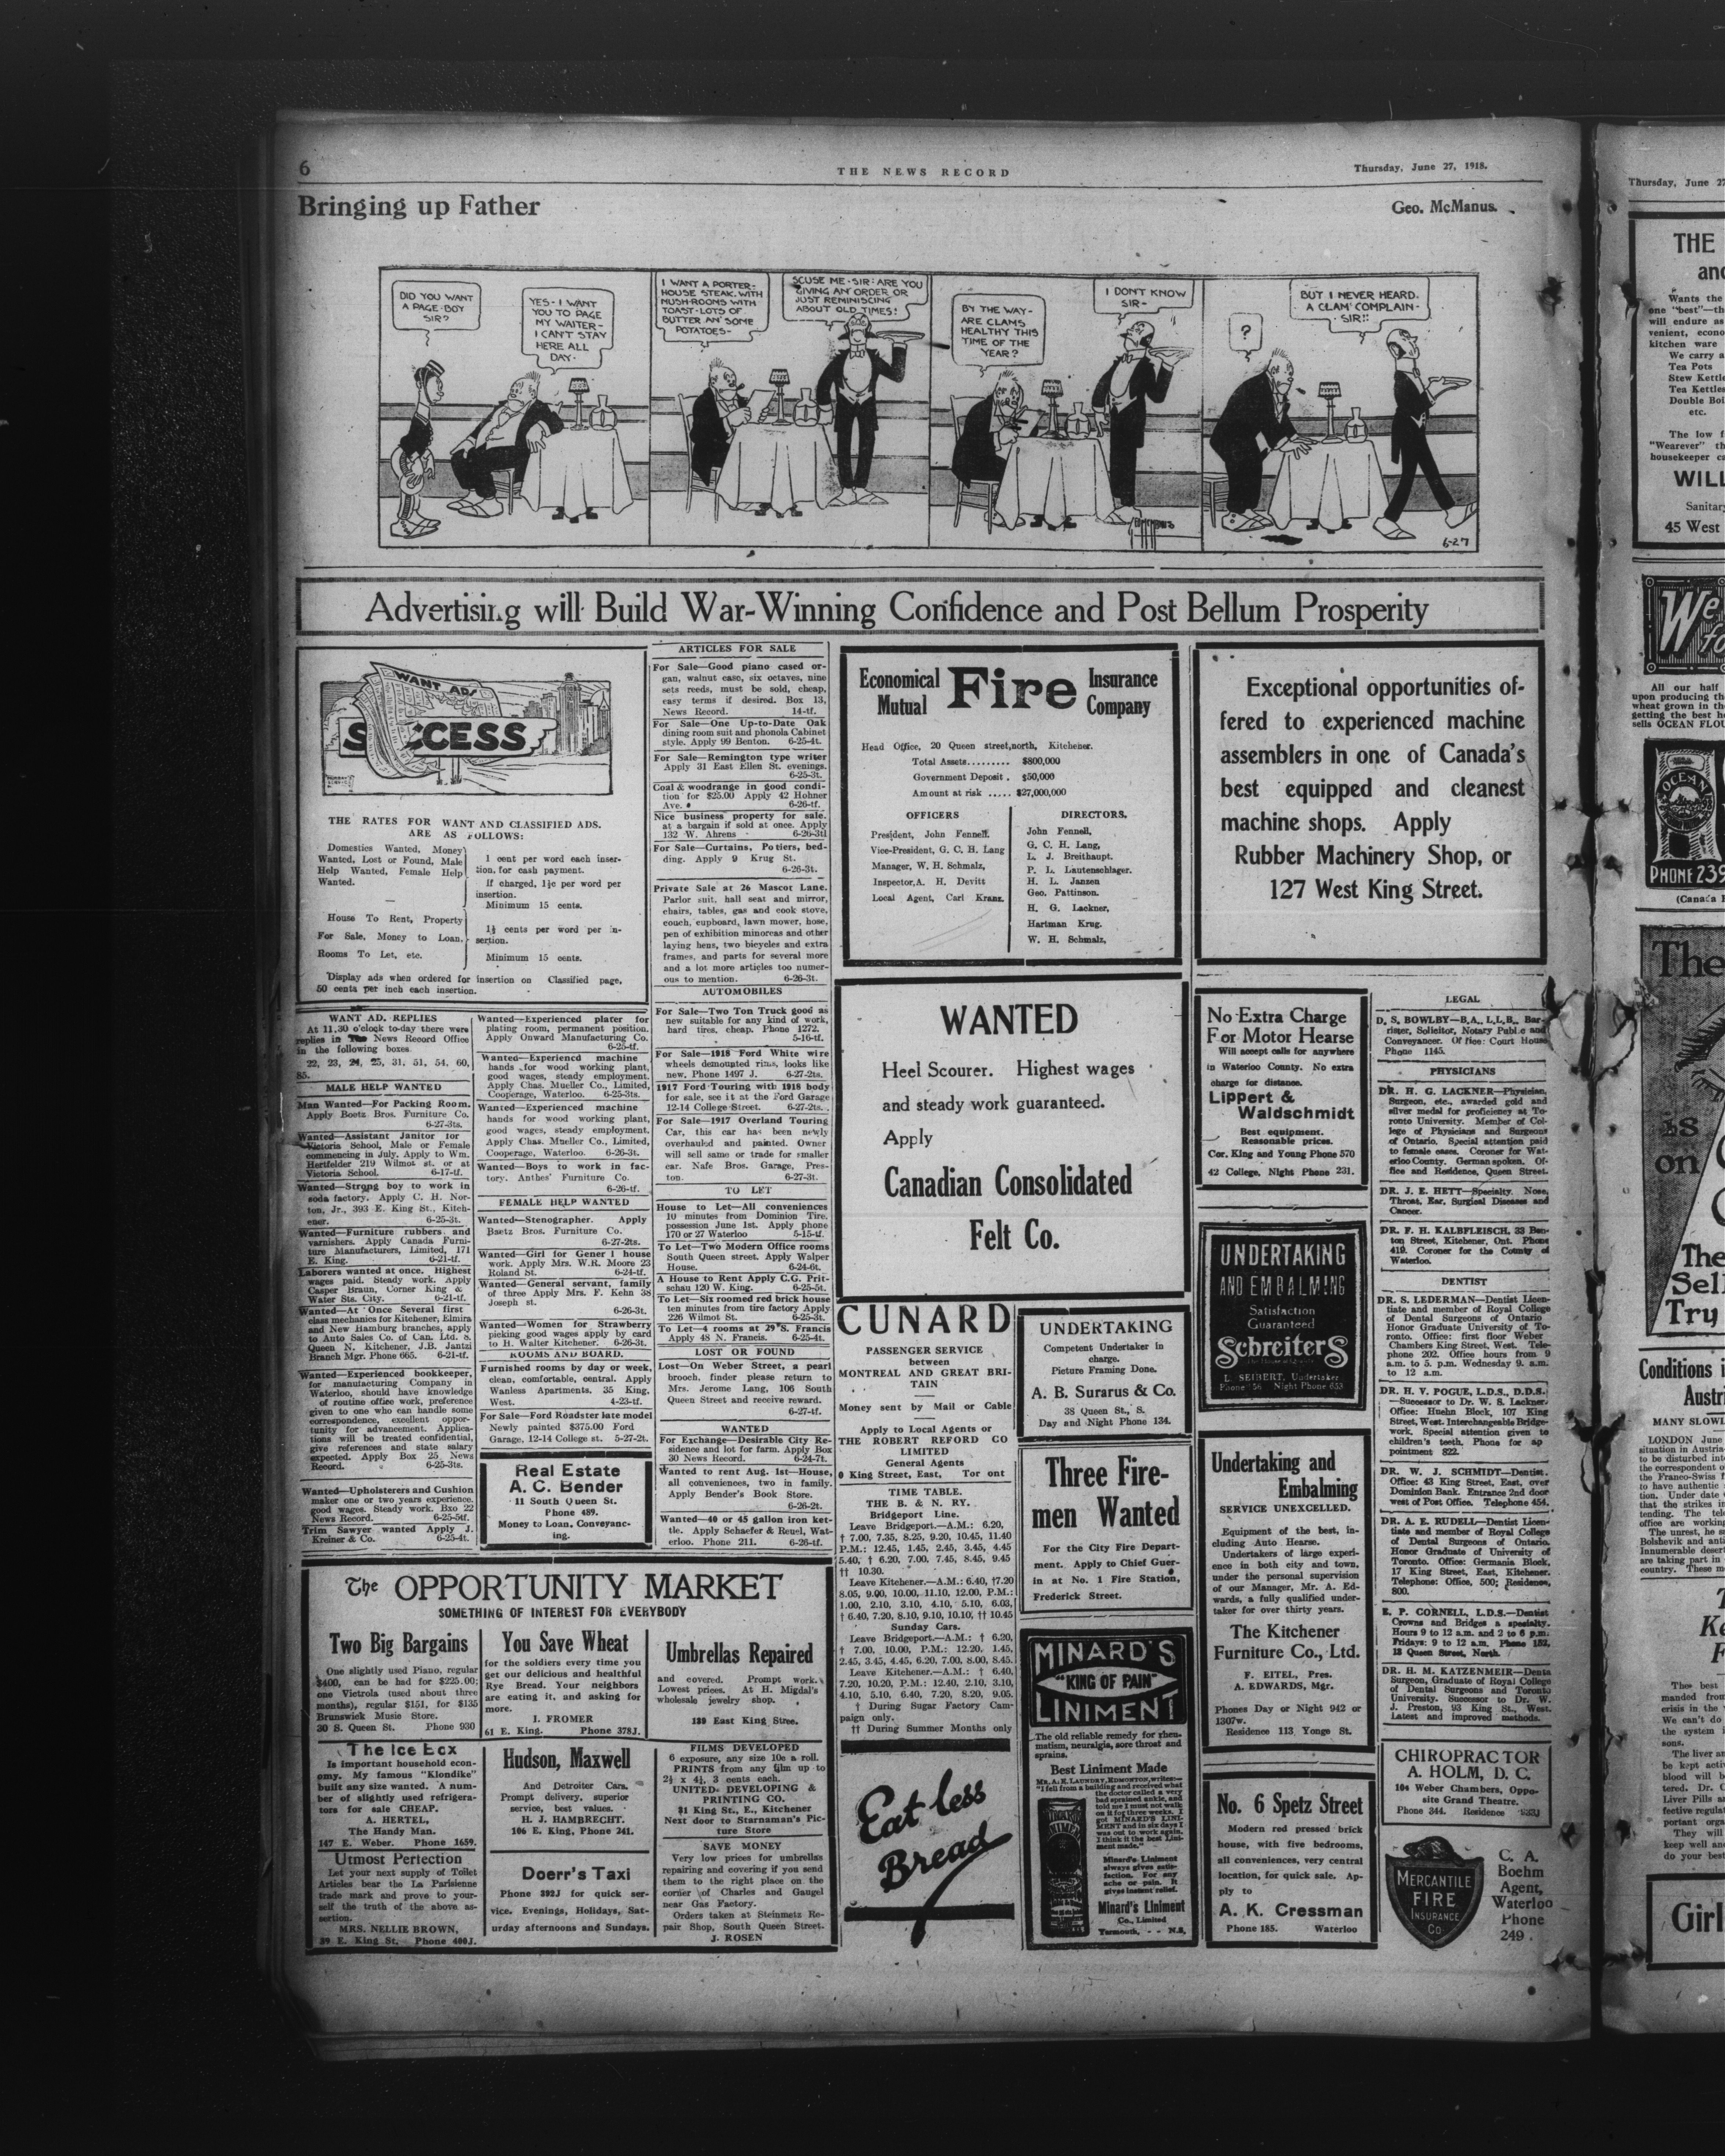 6
THE NEWS RECORD
Thursday, June 27, 1918.
Bringing up Father
Geo. McManus.
DID YOU WANT
A PAGE-BOY
SIR?
YES- I WANT
YOU TO PAGE
MY WAITER-
I CAN'T STAY
HERE ALL
DAY-
I WANT A PORTER-
HOUSE STEAK, WITH
MUSH-ROOMS WITH
TOAST-LOTS OF
BUTTER AN' SOME
POTATOES-
SCUSE ME-SIR-ARE YOU
GIVING AN' ORDER OR
JUST REMINISCING
ABOUT OLD TIMES!
BY THE WAY-
ARE CLAMS
HEALTHY THIS
TIME OF THE
YEAR?
I DON'T KNOW
SIR-
?
BUT I NEVER HEARD.
A CLAM COMPLAIN-
SIR!!
6-27
Advertising will Build War-Winning Confidence and Post Bellum Prosperity
WANT ADS
SUCCESS
THE RATES FOR WANT AND CLASSIFIED ADS.
ARE AS FOLLOWS:
Domestics Wanted, Money
Wanted, Lost or Found, Male
Help Wanted, Female Help
Wanted.
1 cent per word each inser-
tion, for cash payment.
If charged, 1½c per word per
insertion.
Minimum 15 cents.
House To Rent, Property
For Sale, Money to Loan,
Rooms To Let, etc.
1½ cents per word per in-
sertion.
Minimum 15 cents.
Display ads when ordered for insertion on Classified page,
50 cents per inch each insertion.
WANT AD. REPLIES
At 11.30 o'clock to-day there were
replies in The News Record Office
in the following boxes.
22, 23, 24, 25, 31, 51, 54, 60,
85.
MALE HELP WANTED
Man Wanted—For Packing Room.
Apply Boetz Bros. Furniture Co.
6-27-3ts.
Wanted—Assistant Janitor for
Victoria School, Male or Female
commencing in July. Apply to Wm.
Hertfelder 219 Wilmot st. or at
Victoria School. 6-17-tf.
Wanted—Strong boy to work in
soda factory. Apply C. H. Nor-
ton, Jr., 393 E. King St., Kitch-
ener. 6-25-3t.
Wanted—Furniture rubbers and
varnishers. Apply Canada Furni-
ture Manufacturers, Limited, 171
E. King. 6-21-tf.
Laborers wanted at once. Highest
wages paid. Steady work. Apply
Casper Braun, Corner King &
Water Sts. City. 6-21-tf.
Wanted—At Once Several first
class mechanics for Kitchener, Elmira
and New Hamburg branches, apply
to Auto Sales Co. of Can. Ltd. S.
Queen N. Kitchener, J.B. Jantzi
Branch Mgr. Phone 665. 6-21-tf.
Wanted—Experienced bookkeeper,
for manufacturing Company in
Waterloo, should have knowledge
of routine office work, preference
given to one who can handle some
correspondence, excellent oppor-
tunity for advancement. Applica-
tions will be treated confidential,
give references and state salary
expected. Apply Box 25 News
Record. 6-25-3ts.
Wanted—Upholsterers and Cushion
maker one or two years experience.
good wages. Steady work. Bxo 22
News Record. 6-25-5tf.
Trim Sawyer wanted Apply J.
Kreiner & Co. 6-25-4t.
Wanted—Experienced plater for
plating room, permanent position.
Apply Onward Manufacturing Co.
6-25-tf.
Wanted—Experiencd machine
hands for wood working plant,
good wages, steady employment.
Apply Chas. Mueller Co., Limited,
Cooperage, Waterloo. 6-25-3ts.
Wanted—Experienced machine
hands for wood working plant,
good wages, steady employment.
Apply Chas. Mueller Co., Limited,
Cooperage, Waterloo. 6-26-3t.
Wanted—Boys to work in fac-
tory. Anthes' Furniture Co.
6-26-tf.
FEMALE HELP WANTED
Wanted—Stenographer. Apply
Baetz Bros. Furniture Co.
6-27-2ts.
Wanted—Girl for Gener l house
work. Apply Mrs. W.R. Moore 23
Roland St. 6-24-tf.
Wanted—General servant, family
of three Apply Mrs. F. Kehn 38
Joseph st.
6-26-3t.
Wanted—Women for Strawberry
picking good wages apply by card
to H. Walter Kitchener. 6-26-3t.
ROOMS AND BOARD.
Furnished rooms by day or week,
clean, comfortable, central. Apply
Wanless Apartments. 35 King.
West. 4-23-tf.
For Sale—Ford Roadster late model
Newly painted $375.00 Ford
Garage, 12-14 College st. 5-27-2t.
Real Estate
A. C. Bender
11 South Queen St.
Phone 489.
Money to Loan. Conveyanc-
ing.
ARTICLES FOR SALE
For Sale—Good piano cased or-
gan, walnut case, six octaves, nine
sets reeds, must be sold, cheap,
easy terms if desired. Box 13,
News Record. 14-tf.
For Sale—One Up-to-Date Oak
dining room suit and phonola Cabinet
style. Apply 99 Benton. 6-25-4t.
For Sale—Remington type writer
Apply 31 East Ellen St. evenings.
6-25-3t.
Coal & woodrange in good condi-
tion for $25.00 Apply 42 Hohner
Ave. 6-26-tf.
Nice business property for sale.
at a bargain if sold at once. Apply
132 W. Ahrens 6-26-3tl
For Sale—Curtains, Potiers, bed-
ding. Apply 9 Krug St.
6-26-3t.
Private Sale at 26 Mascot Lane.
Parlor suit, hall seat and mirror,
chairs, tables, gas and cook stove,
couch, cupboard, lawn mower, hose,
pen of exhibition minorcas and other
laying hens, two bicycles and extra
frames, and parts for several more
and a lot more articles too numer-
ous to mention. 6-26-3t.
AUTOMOBILES
For Sale—Two Ton Truck good as
new suitable for any kind of work,
hard tires, cheap. Phone 1272.
5-16-tf.
For Sale—1918 Ford White wire
wheels demounted rims, looks like
new. Phone 1497 J. 6-27-2ts.
1917 Ford Touring with 1918 body
for sale, see it at the Ford Garage
12-14 College Street. 6-27-2ts.
For Sale—1917 Overland Touring
Car, this car has been newly
overhauled and painted. Owner
will sell same or trade for smaller
car. Nafe Bros. Garage, Pres-
ton. 6-27-3t.
TO LET
House to Let—All conveniences
10 minutes from Dominion Tire,
possession June 1st. Apply phone
170 or 27 Waterloo 5-15-tf.
To Let—Two Modern Office rooms
South Queen street. Apply Walper
House. 6-24-6t.
A House to Rent Apply C.G. Prit-
schau 120 W. King. 6-25-5t.
To Let—Six roomed red brick house
ten minutes from tire factory Apply
226 Wilmot St. 6-25-3t.
To Let—4 rooms at 29 S. Francis
Apply 48 N. Francis. 6-25-4t.
LOST OR FOUND
Lost—On Weber Street, a pearl
brooch, finder please return to
Mrs. Jerome Lang, 106 South
Queen Street and receive reward.
6-27-tf.
WANTED
For Exchange—Desirable City Re-
sidence and lot for farm. Apply Box
30 News Record. 6-24-7t.
Wanted to rent Aug. 1st—House,
all conveniences, two in family.
Apply Bender's Book Store.
6-26-2t.
Wanted—40 or 45 gallon iron ket-
tle. Apply Schaefer & Reuel, Wat-
erloo. Phone 211. 6-26-tf.
The OPPORTUNITY MARKET
SOMETHING OF INTEREST FOR EVERYBODY
Two Big Bargains
One slightly used Piano, regular
$400, can be had for $225.00;
one Victrola (used about three
months), regular $151, for $135
Brunswick Music Store.
30 S. Queen St. Phone 930
You Save Wheat
for the soldiers every time you
get our delicious and healthful
Rye Bread. Your neighbors
are eating it, and asking for
more.
I. FROMER
61 E. King. Phone 378J.
Umbrellas Repaired
and covered. Prompt work.
Lowest prices. At H. Migdal's
wholesale jewelry shop.
189 East King Stree.
The Ice Box
Is important household econ-
omy. My famous "Klondike"
built any size wanted. A num-
ber of slightly used refrigera-
tors for sale CHEAP.
A. HERTEL,
The Handy Man.
147 E. Weber. Phone 1659.
Utmost Perfection
Let your next supply of Toilet
Articles bear the La Parisienne
trade mark and prove to your-
self the truth of the above as-
sertion.
MRS. NELLIE BROWN,
39 E. King St. Phone 400J.
Hudson, Maxwell
And Detroiter Cars.
Prompt delivery, superior
service, best values.
H. J. HAMBRECHT.
106 E. King, Phone 241.
Doerr's Taxi
Phone 392J for quick ser-
vice. Evenings, Holidays, Sat-
urday afternoons and Sundays.
FILMS DEVELOPED
6 exposure, any size 10c a roll.
PRINTS from any film up to
2½ x 4¼, 3 cents each.
UNITED DEVELOPING &
PRINTING CO.
$1 King St., E., Kitchener
Next door to Starnaman's Pic-
ture Store
SAVE MONEY
Very low prices for umbrellas
repairing and covering if you send
them to the right place on the
corner of Charles and Gaugel
near Gas Factory.
Orders taken at Steinmetz Re-
pair Shop, South Queen Street.
J. ROSEN
Economical
Mutual
Fire
Insurance
Company
Head Office, 20 Queen street,north, Kitchener.
Total Assets......... $800,000
Government Deposit . $50,000
Amount at risk ..... $27,000,000
OFFICERS
President, John Fennell.
Vice-President, G. C. H. Lang
Manager, W. H. Schmalz,
Inspector,A. H. Devitt
Local Agent, Carl Kranz.
DIRECTORS.
John Fennell,
G. C. H. Lang,
L. J. Breithaupt.
P. L. Lautenschlager.
H. L. Janzen
Geo. Pattinson.
H. G. Lackner,
Hartman Krug.
W. H. Schmalz,
WANTED
Heel Scourer. Highest wages
and steady work guaranteed.
Apply
Canadian Consolidated
Felt Co.
CUNARD
PASSENGER SERVICE
between
MONTREAL AND GREAT BRI-
TAIN
Money sent by Mail or Cable
Apply to Local Agents or
THE ROBERT REFORD CO
LIMITED
General Agents
0 King Street, East, Tor ont
TIME TABLE.
THE B. & N. RY.
Bridgeport Line.
Leave Bridgeport.—A.M.: 6.20,
† 7.00, 7.35, 8.25, 9.20, 10.45, 11.40
P.M.: 12.45, 1.45, 2.45, 3.45, 4.45
5.40, † 6.20, 7.00, 7.45, 8.45, 9.45
†† 10.30.
Leave Kitchener.—A.M.: 6.40, †7.20
8.05, 9.00, 10.00, 11.10, 12.00, P.M.:
1.00, 2.10, 3.10, 4.10, 5.10, 6.03,
† 6.40, 7.20, 8.10, 9.10, 10.10, †† 10.45
Sunday Cars.
Leave Bridgeport.—A.M.: † 6.20,
† 7.00, 10.00, P.M.: 12.20, 1.45,
2.45, 3.45, 4.45, 6.20, 7.00, 8.00, 8.45.
Leave Kitchener.—A.M.: † 6.40,
7.20, 10.20, P.M.: 12.40, 2.10, 3.10,
4.10, 5.10, 6.40, 7.20, 8.20, 9.05.
† During Sugar Factory Cam-
paign only.
†† During Summer Months only
Eat less
Bread
UNDERTAKING
Competent Undertaker in
charge.
Picture Framing Done.
A. B. Surarus & Co.
38 Queen St., S.
Day and Night Phone 134.
Three Fire-
men Wanted
For the City Fire Depart-
ment. Apply to Chief Guer-
in at No. 1 Fire Station,
Frederick Street.
MINARD'S
"KING OF PAIN"
LINIMENT
The old reliable remedy for rheu-
matism, neuralgia, sore throat and
sprains.
Best Liniment Made
MR. A. E. LAUNDRY, EDMONTON, writes:—
"I fell from a building and received what
the doctor called a very
bad sprained ankle, and
told me I must not walk
on it for three weeks. I
got MINARD'S LINI-
MENT and in six days I
was out to work again.
I think it the best Lini-
ment made."
Minard's Liniment
always gives satis-
faction. For any
ache or pain. It
gives instant relief.
Minard's Liniment
Co., Limited
Yarmouth, - - N.S.
Exceptional opportunities of-
fered to experienced machine
assemblers in one of Canada's
best equipped and cleanest
machine shops. Apply
Rubber Machinery Shop, or
127 West King Street.
No Extra Charge
For Motor Hearse
Will accept calls for anywhere
in Waterloo County. No extra
charge for distance.
Lippert &
Waldschmidt
Best equipment.
Reasonable prices.
Cor. King and Young Phone 570
42 College, Night Phone 231.
UNDERTAKING
AND EMBALMING
Satisfaction
Guaranteed
Schreiters
L. SEIBERT, Undertaker
Phone 56 Night Phone 653
Undertaking and
Embalming
SERVICE UNEXCELLED.
Equipment of the best, in-
cluding Auto Hearse.
Undertakers of large experi-
ence in both city and town,
under the personal supervision
of our Manager, Mr. A. Ed-
wards, a fully qualified under-
taker for over thirty years.
The Kitchener
Furniture Co., Ltd.
F. EITEL, Pres.
A. EDWARDS, Mgr.
Phones Day or Night 942 or
1307w.
Residence 113 Yonge St.
No. 6 Spetz Street
Modern red pressed brick
house, with five bedrooms,
all conveniences, very central
location, for quick sale. Ap-
ply to
A. K. Cressman
Phone 185. Waterloo
LEGAL
D. S. BOWLBY—B.A., L.L.B., Bar-
rister, Solicitor, Notary Public and
Conveyancer. Of fice: Court House
Phone 1145.
PHYSICIANS
DR. H. G. LACKNER—Physician,
Surgeon, etc., awarded gold and
silver medal for proficiency at To-
ronto University. Member of Col-
lege of Physicians and Surgeons
of Ontario. Special attention paid
to female cases. Coroner for Wat-
erloo County. German spoken. Of-
fice and Residence, Queen Street.
DR. J. E. HETT—Specialty. Nose,
Throat, Ear, Surgical Diseases and
Cancer.
DR. F. H. KALBFLEISCH, 33 Ben-
ton Street, Kitchener, Ont. Phone
419. Coroner for the County of
Waterloo.
DENTIST
DR. S. LEDERMAN—Dentist Licen-
tiate and member of Royal College
of Dental Surgeons of Ontario
Honor Graduate University of To-
ronto. Office: first floor Weber
Chambers King Street, West. Tele-
phone 202. Office hours from 9
a.m. to 5. p.m. Wednesday 9. a.m.
to 12 a.m.
DR. H. V. POGUE, L.D.S., D.D.S.
—Successor to Dr. W. S. Lackner.
Office: Huehn Block, 107 King
Street, West. Interchangeable Bridge-
work, Special attention given to
children's teeth. Phone for ap
pointment 822.
DR. W. J. SCHMIDT—Dentist.
Office: 43 King Street, East, over
Dominion Bank. Entrance 2nd door
west of Post Office. Telephone 454.
DR. A. E. RUDELL—Dentist Licen-
tiate and member of Royal College
of Dental Surgeons of Ontario.
Honor Graduate of University of
Toronto. Office: Germania Block,
17 King Street, East, Kitchener.
Telephone: Office, 500; Residence,
800.
E. P. CORNELL, L.D.S.—Dentist
Crowns and Bridges a specialty.
Hours 9 to 12 a.m. and 2 to 6 p.m.
Fridays: 9 to 12 a.m. Phone 182,
18 Queen Street, North.
DR. H. M. KATZENMEIR—Denta
Surgeon, Graduate of Royal College
of Dental Surgeons and Toronto
University. Successor to Dr. W.
J. Preston, 93 King St., West.
Latest and improved methods.
CHIROPRACTOR
A. HOLM, D. C.
104 Weber Chambers, Oppo-
site Grand Theatre.
Phone 344. Residence
MERCANTILE
FIRE
INSURANCE
Co
C. A.
Boehm
Agent,
Waterloo
Phone
249.
Thursday, June 27
THE
and
Wants the
one "best"—th
will endure as
venient, econo
kitchen ware
We carry a
Tea Pots
Stew Kettle
Tea Kettles
Double Boi
etc.
The low f
"Wearever" th
housekeeper ca
WILL
Sanitar
45 West
We
fo
All our half
upon producing th
wheat grown in th
getting the best h
sells OCEAN FLOU
OCEAN
PHONE 239
(Canada F
The
is
on
The
Sell
Try
Conditions i
Austri
MANY SLOWL
LONDON June
situation in Austria
to be disturbed int
the correspondent o
the Franco-Swiss f
to have authentic
tion. Under date
that the strikes in
tending. The tele
office are working
The unrest, he s
Bolshevik and anti
Innumerable desert
are taking part in
country. These m
T
Ke
F
The best
manded from
crisis in the
We can't do
the system i
sons.
The liver an
be kept activ
blood will b
tered. Dr. C
Liver Pills a
fective regulat
portant orga
They will
keep well and
do your best
Girl